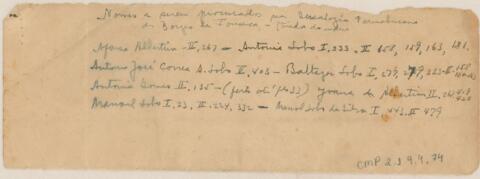 Nomes a serem procurados na Genealogia Pernambucana
de Borges da Fonseca -
Afonso Albertim - II, 267 - Antonio Lobo I, 233, II 158, 159, 163, 181.
Antonio José Correa S. Lobo II, 403 - Baltezar Lobo I, 277, 279, 333 - II 158
Antonio Gomes II, 135 - Joana de Albertim II, 261
Manoel Lobo I, 23, II, 224, 332 - Manoel Lobo da Silva I 443, II 479
CMP 2.3.9.4.74